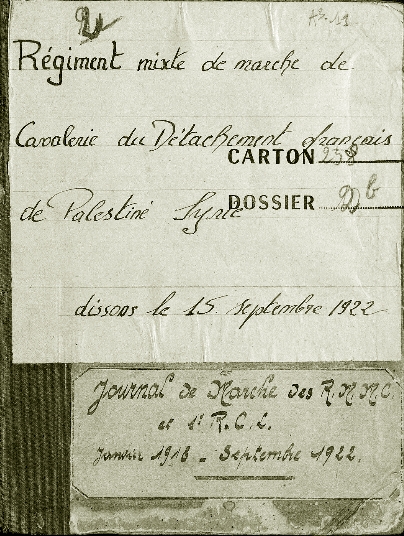 2
Régiment mixte de marche de
Cavalerie du Détachement français
CARTON 238
de Palestine Syrie
DOSSIER 2 b
dissous le 15 septembre 1922
Journal de Marche des R.M.M.C
et 1er R.C.L.
Janvier 1918 - Septembre 1922.